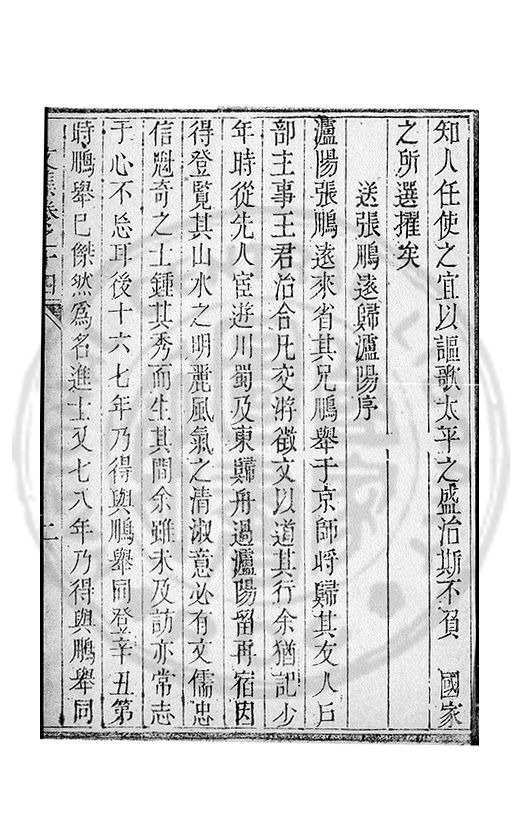 知人任使之宜以謳歌太平之盛治斯不負　國家
之所選擢矣
送張鵬遠歸瀘陽序
瀘陽張鵬遠來省其兄鵬舉于京師將歸其友人戶
部主事王君治合凡交游徵文以道其行余猶記少
年時從先人宦遊川蜀及東歸舟過瀘陽留再宿因
得登覽其山水之明麗風氣之清淑意必有文儒忠
信魁奇之士鍾其秀而生其間余雖未及訪亦常志
于心不忘耳後十六七年乃得與鵬舉同登辛丑第
時鵬舉已傑然爲名進士又七八年乃得與鵬舉同
文集卷之十四
二